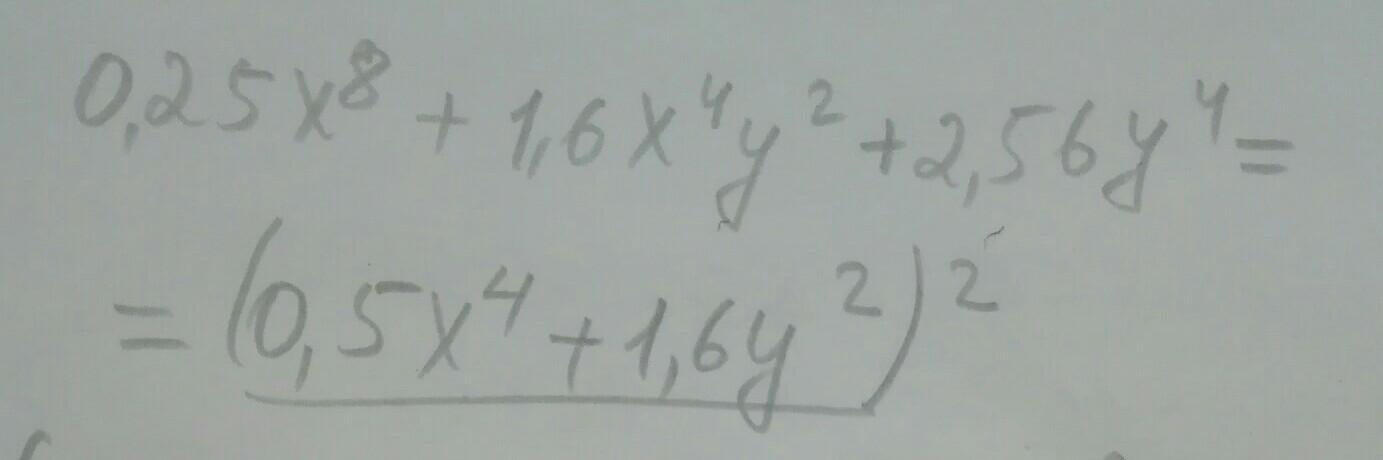 0,25x⁸ + 1,6x⁴y² + 2,56y⁴ =
= (0,5x⁴ + 1,6y²)²